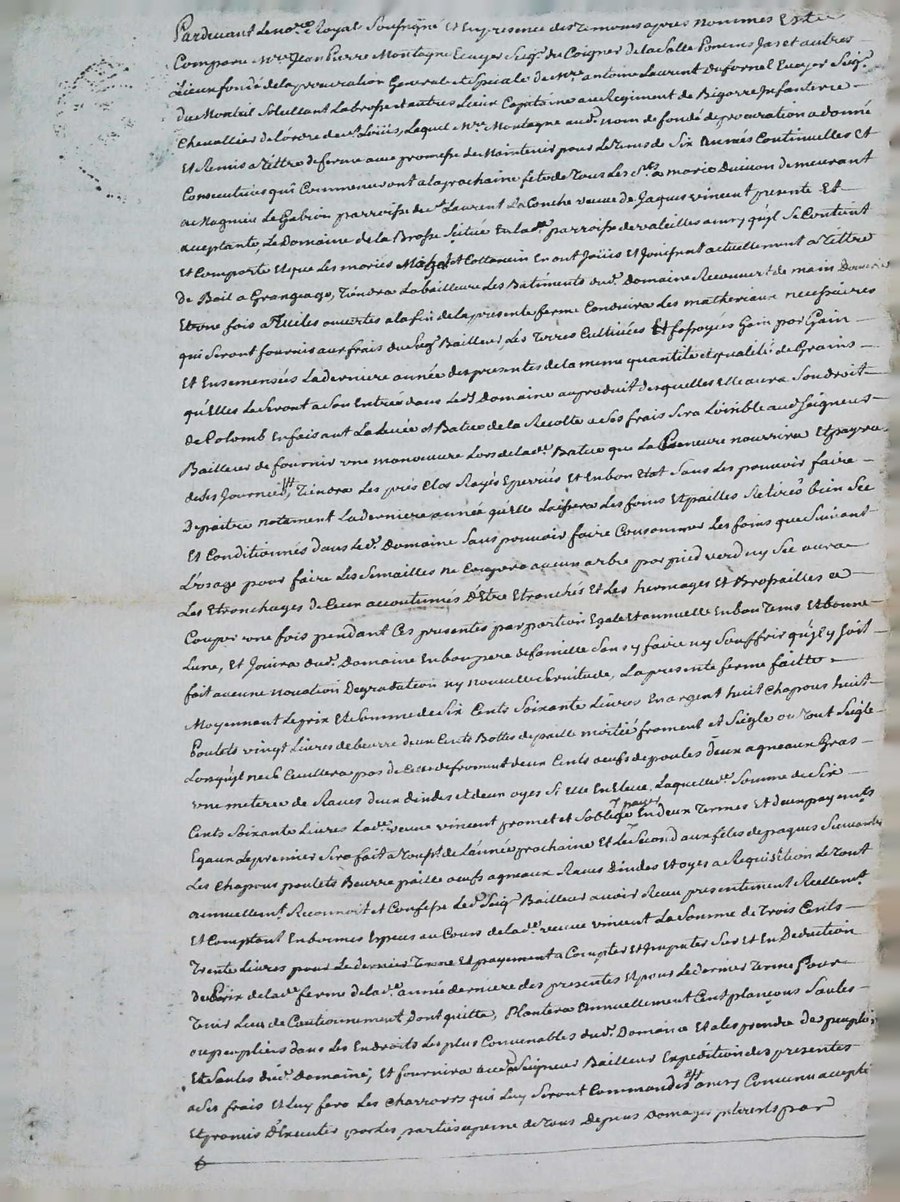 Pardevant Le no.re Royal Soussigné Et En presence des Temoins apres nommés Est
Comparu M.re Jean Pierre Montagne Ecuyer Seig.r du Coignet de la Salle Poncins Jas et autres
Lieux fondé de la procuration General et Speciale de M.re antoine Laurent Dufornel Ecuyer Seig.r
du Monteil Labrosse et autres Lieux Capitaine au Regiment de Bigorre Infanterie
Chevallier de L'ordre de S.t Loüis, Lequel M.re Montagne aud.t nom de fondé de procuration a donné
Et Remis a Tittre de ferme avec promesse de Maintenir pour Le Tems de Six Années Continuelles Et
Consecutives qui Commenceront a la prochaine fete de Tous Les S.ts a marie demeurant
au Le Gabion parroisse de S.t Laurent La Conche veuve de Jaques vincent presente Et
acceptante, Le Domaine de la Brosse Scitué En lad.e parroisse de valeilles ainsy qu'il Se Contient
Et Comporte Et que Les mariés Et Collancin En ont Joüis Et Joüissent actuellement a Tittre
de Bail a Grangeage, Tiendra La bailleure Les Batiments dud. Domaine Recouvert de main
Et une fois a Tuiles ouvertes a la fin de la presente ferme Conduira Les matheriaux necessaires
qui Seront fournis aux frais du Seig.r Bailleur, Les Terres Cultivées Et fossoyées Gain por Gain
Et Ensemensés La derniere année des presentes de la meme quantité et qualité de Grains
qu'Elles Le Seront a Son Entrée dans Led. Domaine au produit desquelles elle aura Son droit
de Colomb En faisant La Levée et Batue de la Recolte a Ses frais Sera Loisible aud. Seigneur
Bailleur de fournir une manoeuvre Lors de lad.e Batue que La Preneure nourrira Et payra
de Ses Journées, Tiendra Les prés Clos Rayés Eperriés Et En bon Etat Sans Les pouvoir faire
Depaitre notament La derniere année qu'elle Laissera Les foins Et pailles Retirés bien Sec
Et Conditionnés dans Led. Domaine Sans pouvoir faire Consommer Les foins que Suivant
L'usage pour faire Les Semailles ne Coupera aucun arbre par pied verd ny Sec aura
Les Etronchages de Ceux accoutumés D'Etre Etronchés Et Les hermages Et Brossailles a
Couper une fois pendant Ces presentes par portion Egale Et annuelle En bon Tems Et bonne
Lune, Et Jouira dud. Domaine En bon pere de famille Sans y faire ny Souffrir qu'il y Soit
fait aucune novation Degradation ny nouvelle Servitude, La presente ferme faitte
Moyennant Le prix Et Somme de Six Cents Soixante Livres En argent huit chapons huit
Poulets vingt Livres de beurre deux Cents Bottes de paille moitié froment et Seigle ou Tout Seigle
Lorsqu'il ne Ceuillera pas de Celle de froment deux Cents oeufs de poules deux agneaux Gras
une meterée de Raves deux dindes et deux oyes Si Elle En Eleve, Laquelle d.e Somme de Six
Cents Soixante Livres Lad.e veuve vincent promet et S'oblige payer En deux Termes Et deux payem.ts
Egaux Le premier Sera fait a de L'année prochaine Et Le Second aux fêtes de paques Suivantes
Les Chapons poulets Beurre paille oeufs agneaux Raves Dindes Et oyes a Requisition Le Tout
annuellem.t, Reconnoit et Confesse Led. Seig.r Bailleur avoir Receu presentement Reellem.t
Et Comptant En bonnes Especes au Cours de lad.e veuve vincent La Somme de Trois Cents
Trente Livres pour Le dernier Terme Et payement a Compter Et Imputer Sur Et En Deduction
du Prix de lad.e ferme de lad.e année derniere des presentes Et pour Le dernier Terme Pour
Tenir Lieu de Cautionnement, dont quitte, Plantera Annuellement Cent plançons Saules
ou peupliers dans Les Endroits Les plus Convenables dud. Domaine Et a les prendre des peupliers
Et Saules dud. Domaine, Et fournira aud. Seigneur Bailleur Expédition des presentes
a Ses frais Et Luy fera Les Charrois qui Luy Seront Commandés ainsy Convenu accepté
Et promis D'Executer par Les parties a peine de Tous Depens Domages Interets par